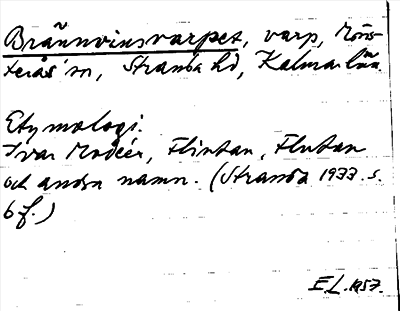 Brännvinsvarpet, varp, Möns-
terås sn, Stranda hd, Kalmar län.
Etymologi.
Ivar Modéer, Flintan, Flutan
och andra namn. (Stranda 1933 s.
6 f.)
E.L. 1957.